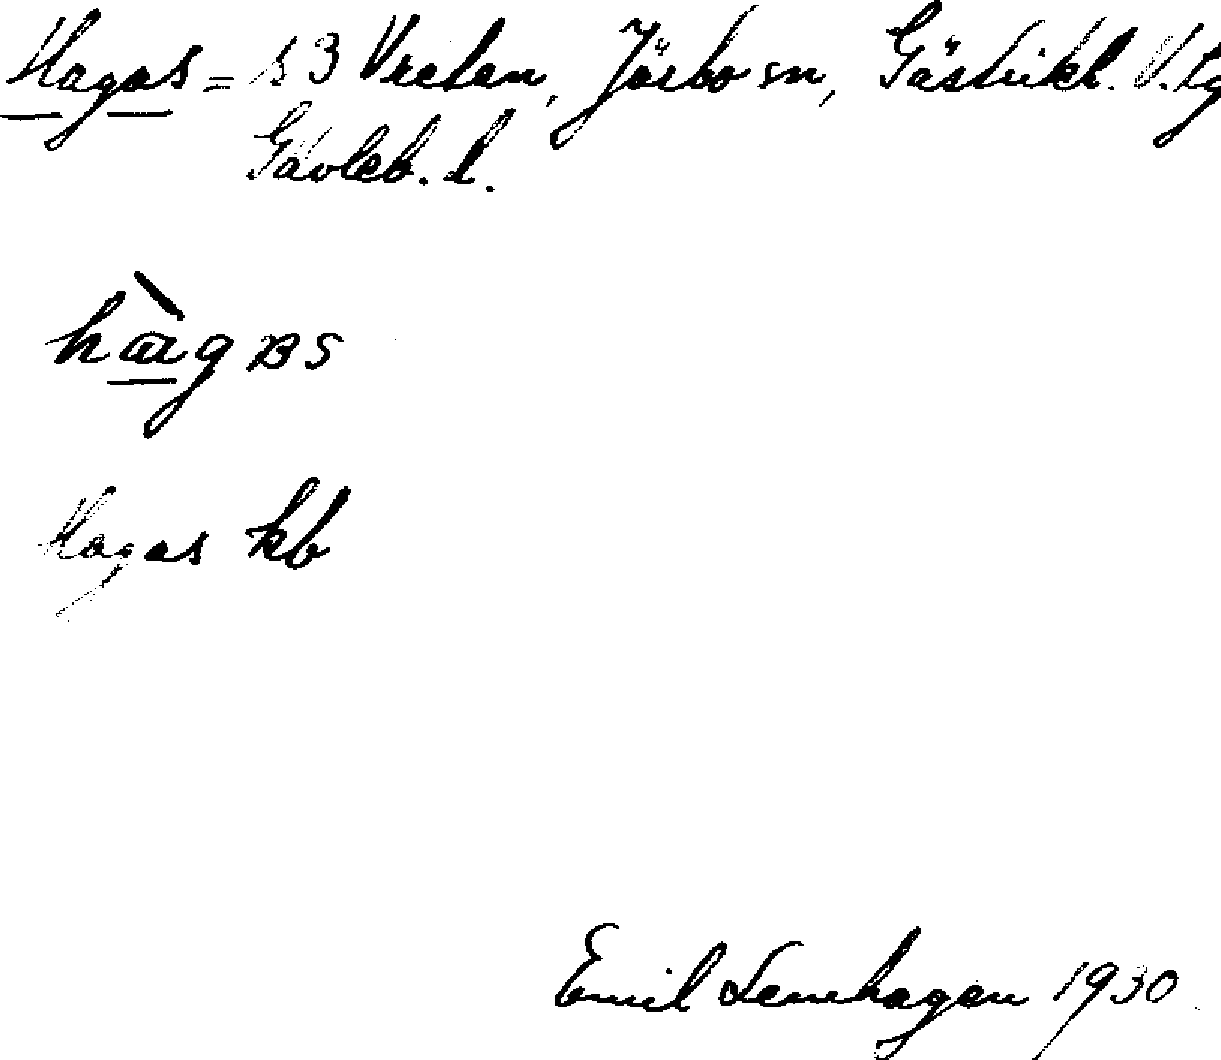 Hagas = 13 Vreten, Järbo sn, Gästrikl. V. tg
Gävleb. l.
hàgBS
Hagas kb
Emil Lenehagen 1930